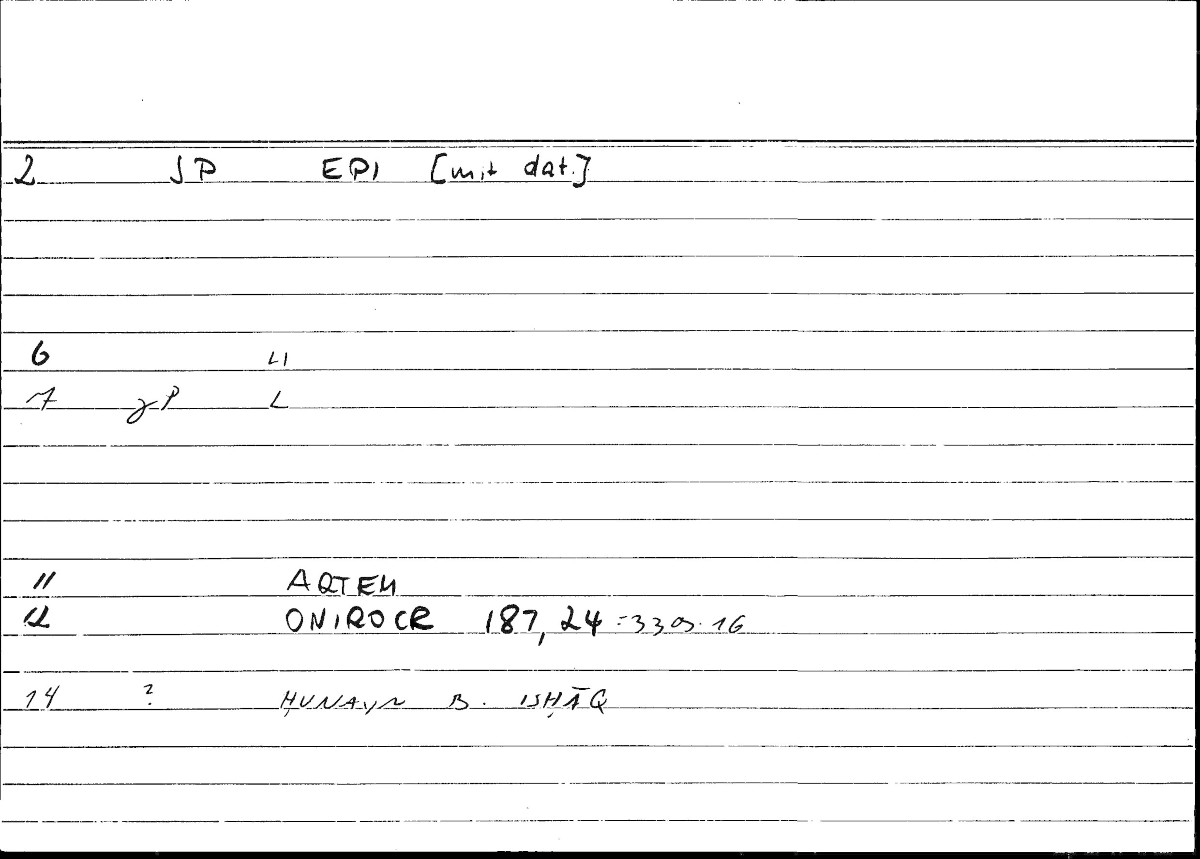 2 JP EPI [mit dat.]
6 LI
7 P L
11 ARTEM
12 ONIROCR 187,24 = 330.16
14 ? ḤUNAYN B. ISḤĀQ